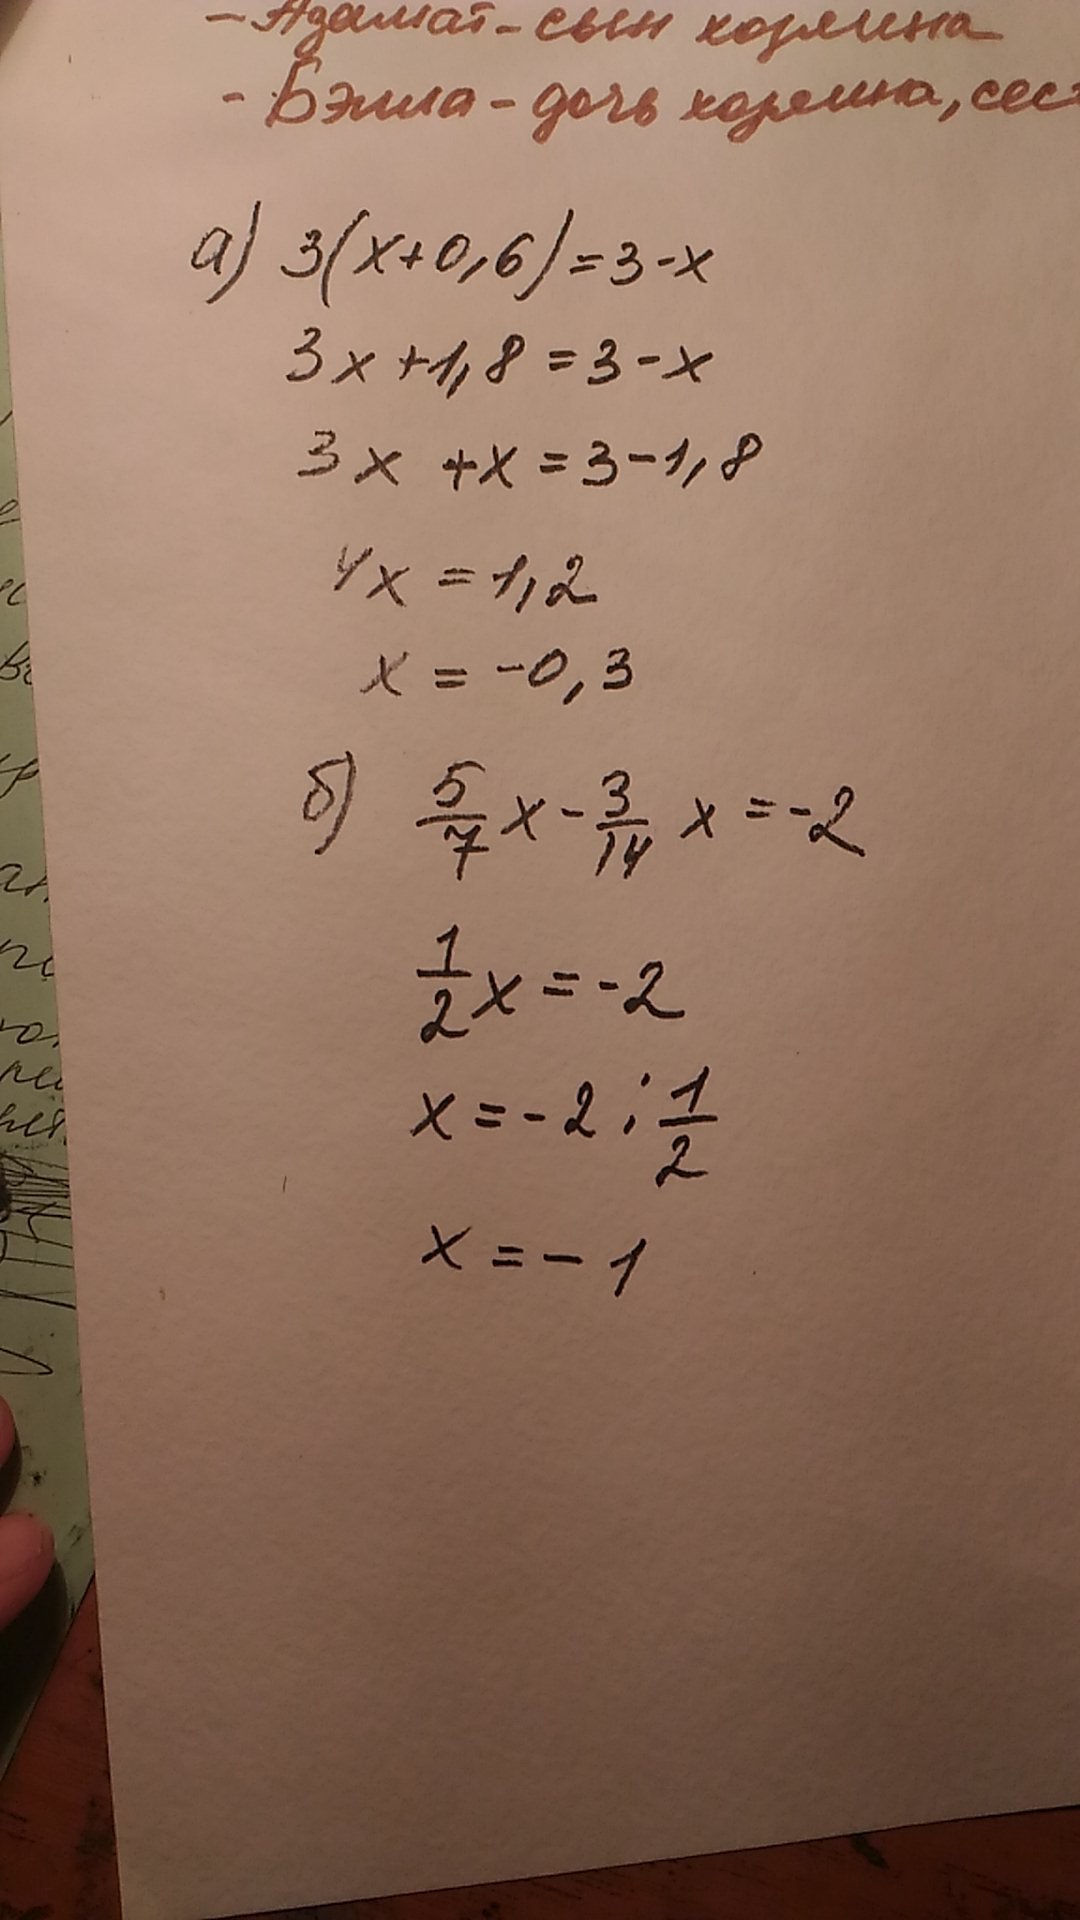 - Азамат - сын хозяина
- Бэлла - дочь хозяина, сес
а) 3(x+0,6)=3-x
3x+1,8=3-x
3x +x=3-1,8
4x=1,2
x=-0,3
б) 5/7 x - 3/14 x = -2
1/2 x = -2
x = -2 : 1/2
x = - 1